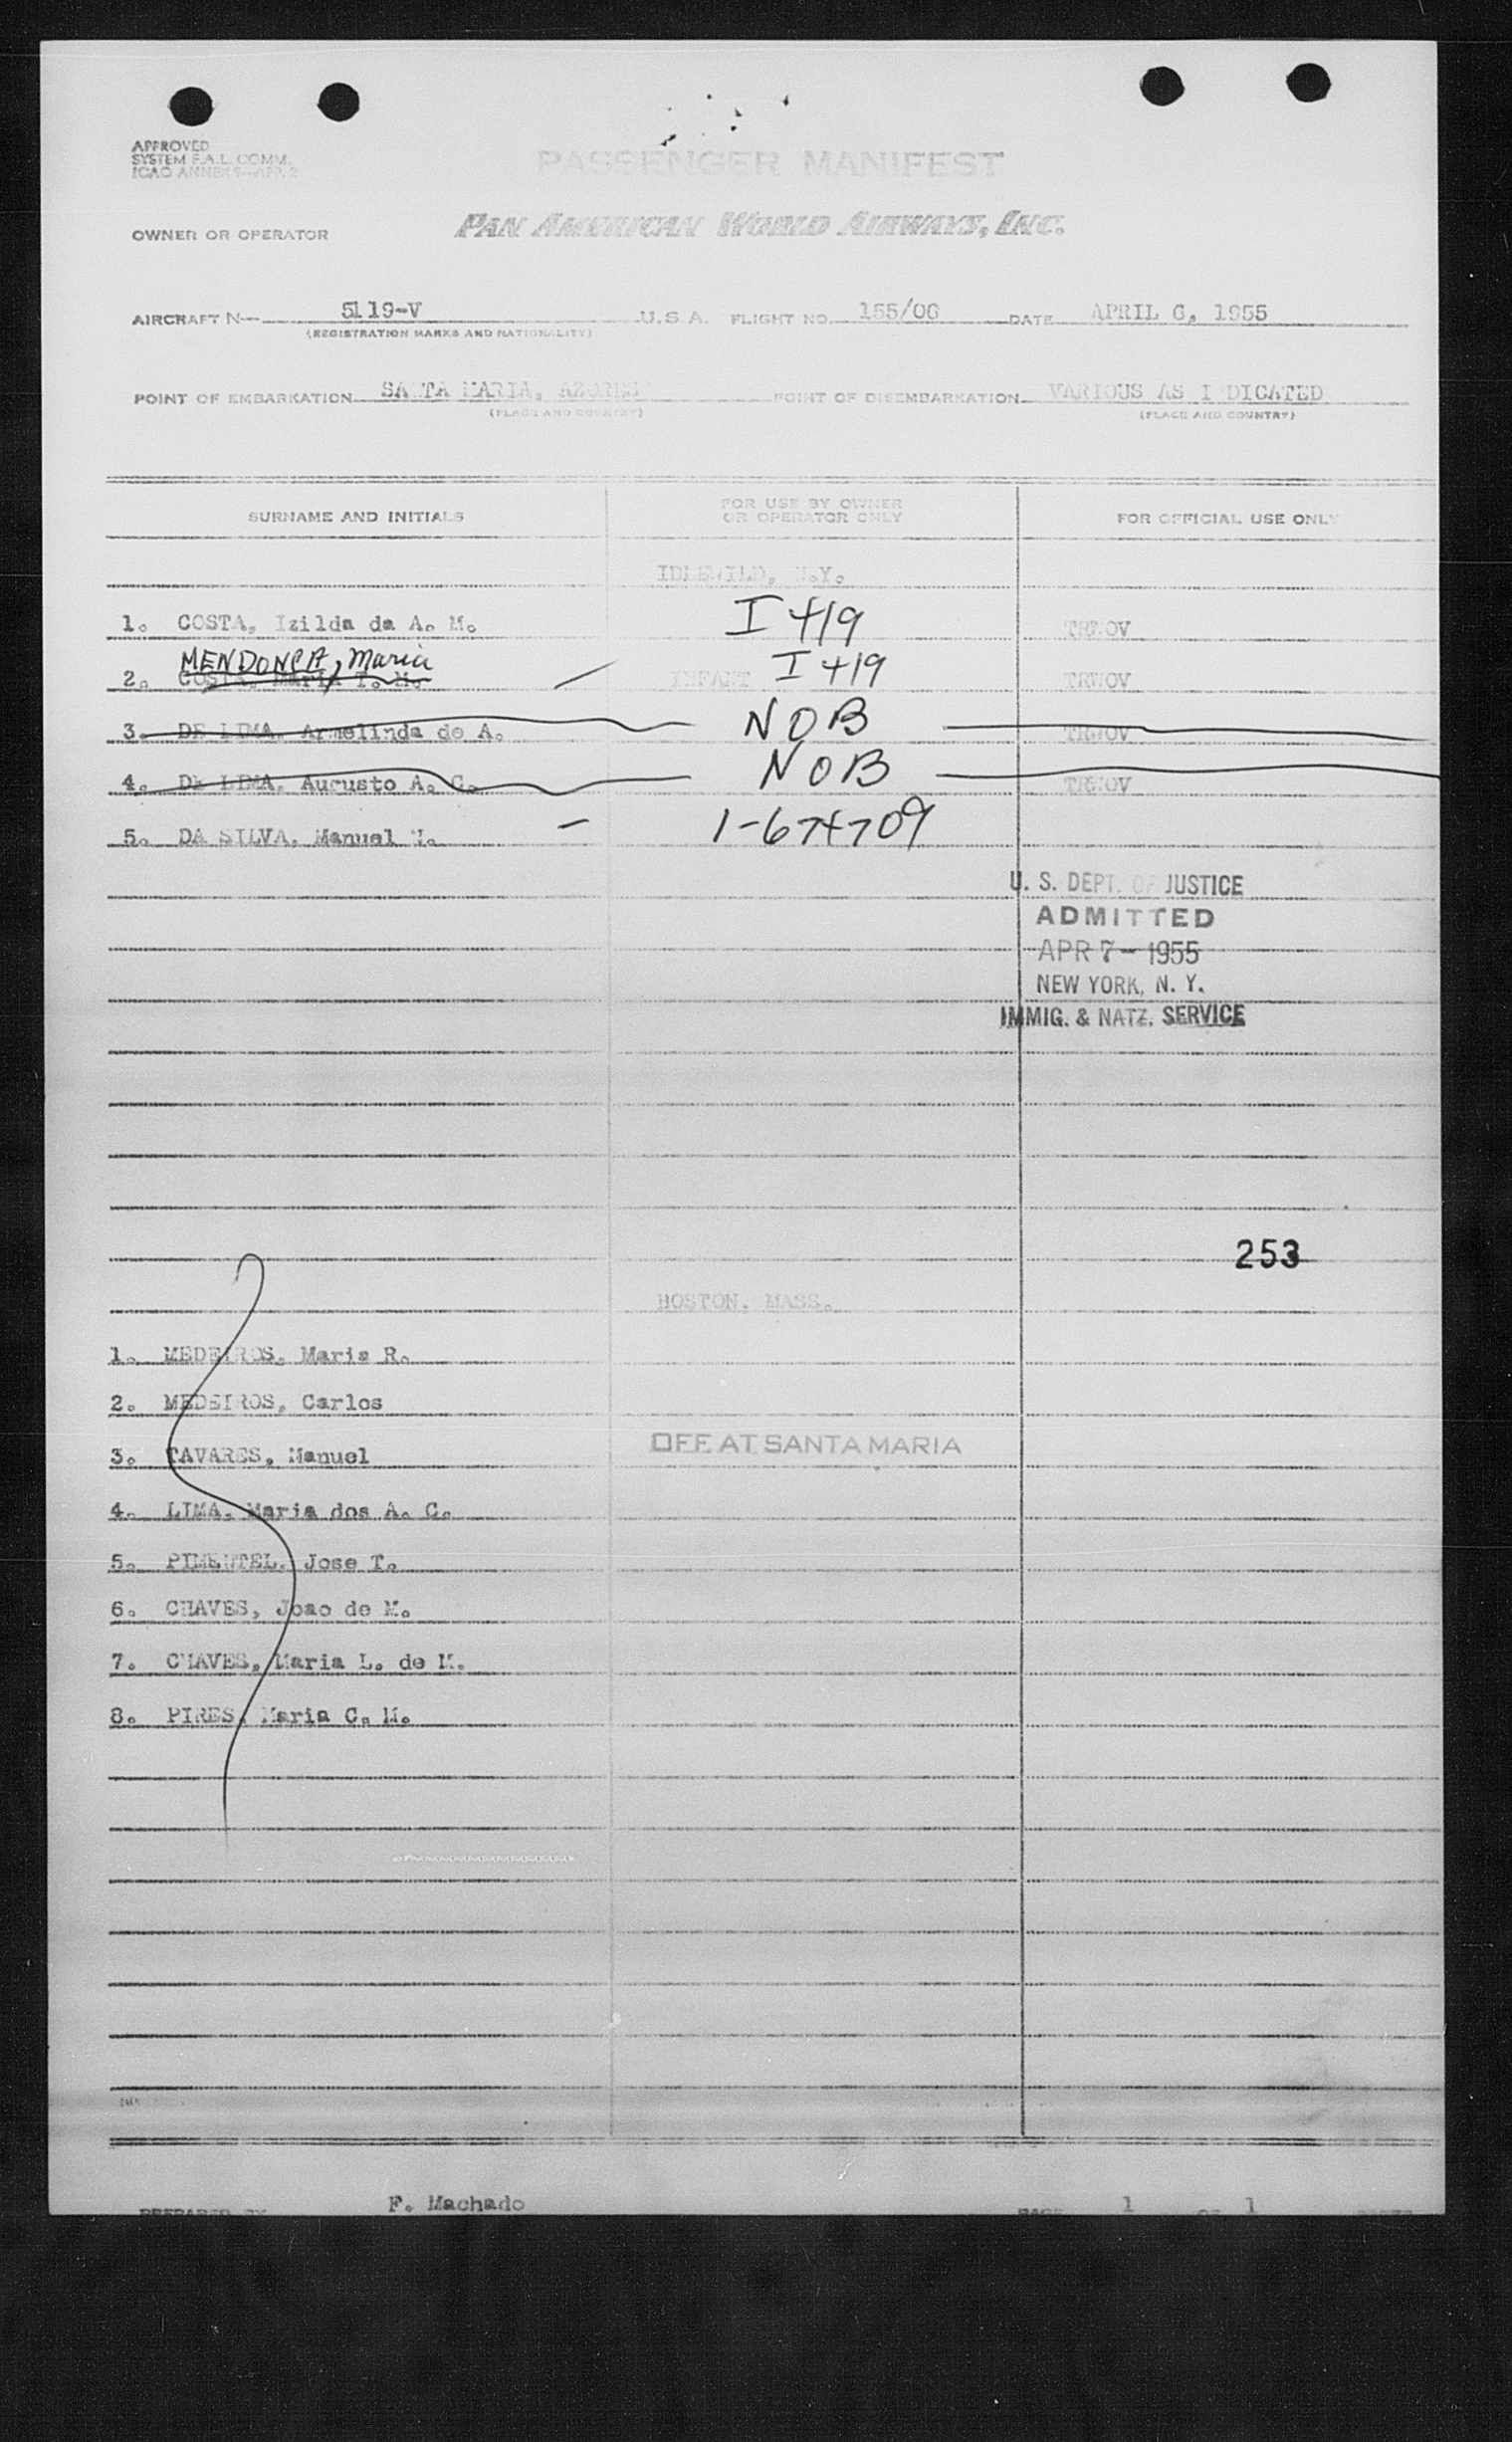 APPROVED
SYSTEM F.A.L. COMM.
ICAO ANNEX 9—APP. 2
PASSENGER MANIFEST
OWNER OR OPERATOR PAN AMERICAN WORLD AIRWAYS, INC.
AIRCRAFT N— 5119-V U.S.A. FLIGHT NO. 155/06 DATE APRIL 6, 1955
(REGISTRATION MARKS AND NATIONALITY)
POINT OF EMBARKATION SANTA MARIA, AZORES POINT OF DISEMBARKATION VARIOUS AS INDICATED
(PLACE AND COUNTRY) (PLACE AND COUNTRY)
SURNAME AND INITIALS FOR USE BY OWNER OR OPERATOR ONLY FOR OFFICIAL USE ONLY
IDLEWILD, N.Y.
1. COSTA, Izilda da A. M. I 419 TRWOV
MENDONCA, Maria
2. COSTA, Maria T. M. INFANT I 419 TRWOV
3. DE LIMA, Armelinda de A. NOB TRWOV
4. DE LIMA, Augusto A. C. NOB TRWOV
5. DA SILVA, Manuel 1-674709
U. S. DEPT. OF JUSTICE
ADMITTED
APR 7 - 1955
NEW YORK, N. Y.
IMMIG. & NATZ. SERVICE
253
BOSTON, MASS.
1. MEDEIROS, Maria R.
2. MEDEIROS, Carlos
OFF AT SANTA MARIA
3. TAVARES, Manuel
4. LIMA, Maria dos A. C.
5. PIMENTEL, Jose T.
6. CHAVES, Joao de M.
7. CHAVES, Maria L. de M.
8. PIRES, Maria C. M.
PREPARED BY F. Machado PAGE 1 OF 1